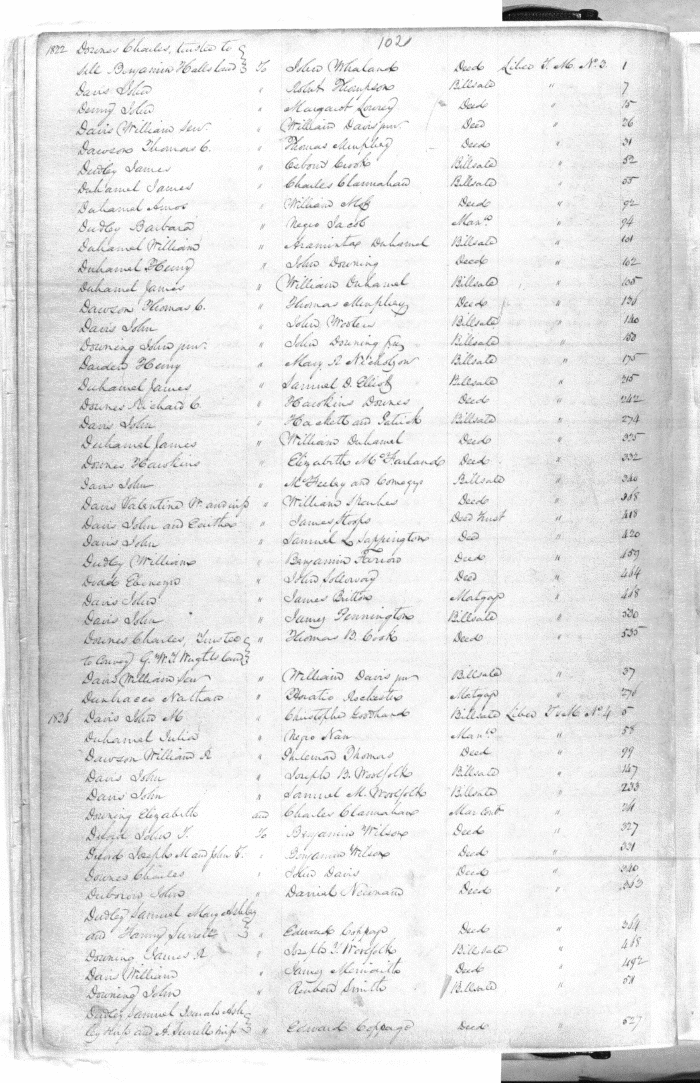 102
1822 Downes Charles, trustee to
sell Benjamin Halls land To John Whaland Deed Liber T. M. No. 3 1
Davis John " Robt Thompson Billsale " 7
Denny John " Margaret Lowrey Deed " 15
Davis William Senr. " William Davis jnr. Deed " 26
Dawson Thomas C. " Thomas Murphey Deed " 31
Dudley James " Osbond Crook Billsale " 52
Duhamel James " Charles Clannahan Billsale " 55
Duhamel Amos " William Deed " 92
Dudley Barbara " Negro Jacob Mann. " 94
Duhamel William " Araminta Duhamel Billsale " 101
Duhamel Henry " John Downing Deed " 102
Duhamel James " William Duhamel Billsale " 105
Dawson Thomas C. " Thomas Murphey Deed " 126
Davis John " John Wooters Billsale " 140
Downing John jnr. " John Downing Billsale " 150
Darden Henry " Mary A Nicholson Billsale " 175
Duhamel James " Samuel D. Elliott Billsale " 215
Downes Richard C. " Hawkins Downes Deed " 242
Davis John " Hackett and Patrick Billsale " 274
Duhamel James " William Duhamel Deed " 325
Downes Hawkins " Elizabeth McFarland Deed " 332
Davis John " McFeeley and Comegys Billsale " 340
Davis Valentine and " William Deed " 368
Davis John and " James Hoops Deed Trust " 418
Davis John " Samuel L. Sappington Deed " 420
Dudley William " Benjamin Deed " 459
Dodd Ebenezer " John Solloway Deed " 464
Davis John " James Britton Matgage " 468
Davis John " James Pennington Billsale " 530
Downes Charles, Trustee " Thomas B. Cook Deed " 535
to Convey G. W. T. Wrights land
Davis William Senr " William Davis jnr Billsale " 37
Nathan " Horatio Matgage " 276
Davis John M " Christopher Goodhand Billsale Liber T. M. No. 4 5
Duhamel Julia " Negro Nan Manns. " 58
Dawson William A " Philemon Thomas Deed " 99
Davis John " Joseph B. Woolfolk Billsale " 147
Davis John " Samuel M. Woolfolk Billsale " 233
Downing Elizabeth and Charles Clannahan Mar Cont " 261
John T. To Benjamin Wilson Deed " 327
Joseph M and John T. " Benjamin Wilson Deed " 331
Downes Charles " John Davis Deed " 340
John " Daniel Newnam Deed " 363
Dudley Samuel Mary Ashley
and Henry Jerrett " Edward Coppage Deed " 364
Downing James A " Joseph Y. Woolfolk Billsale " 468
Davis William " James Meredith Deed " 492
Downing John " Reuben Smith Billsale " 51
Dudley Samuel Ash
ley and A. Jerrett " Edward Coppage Deed " 527